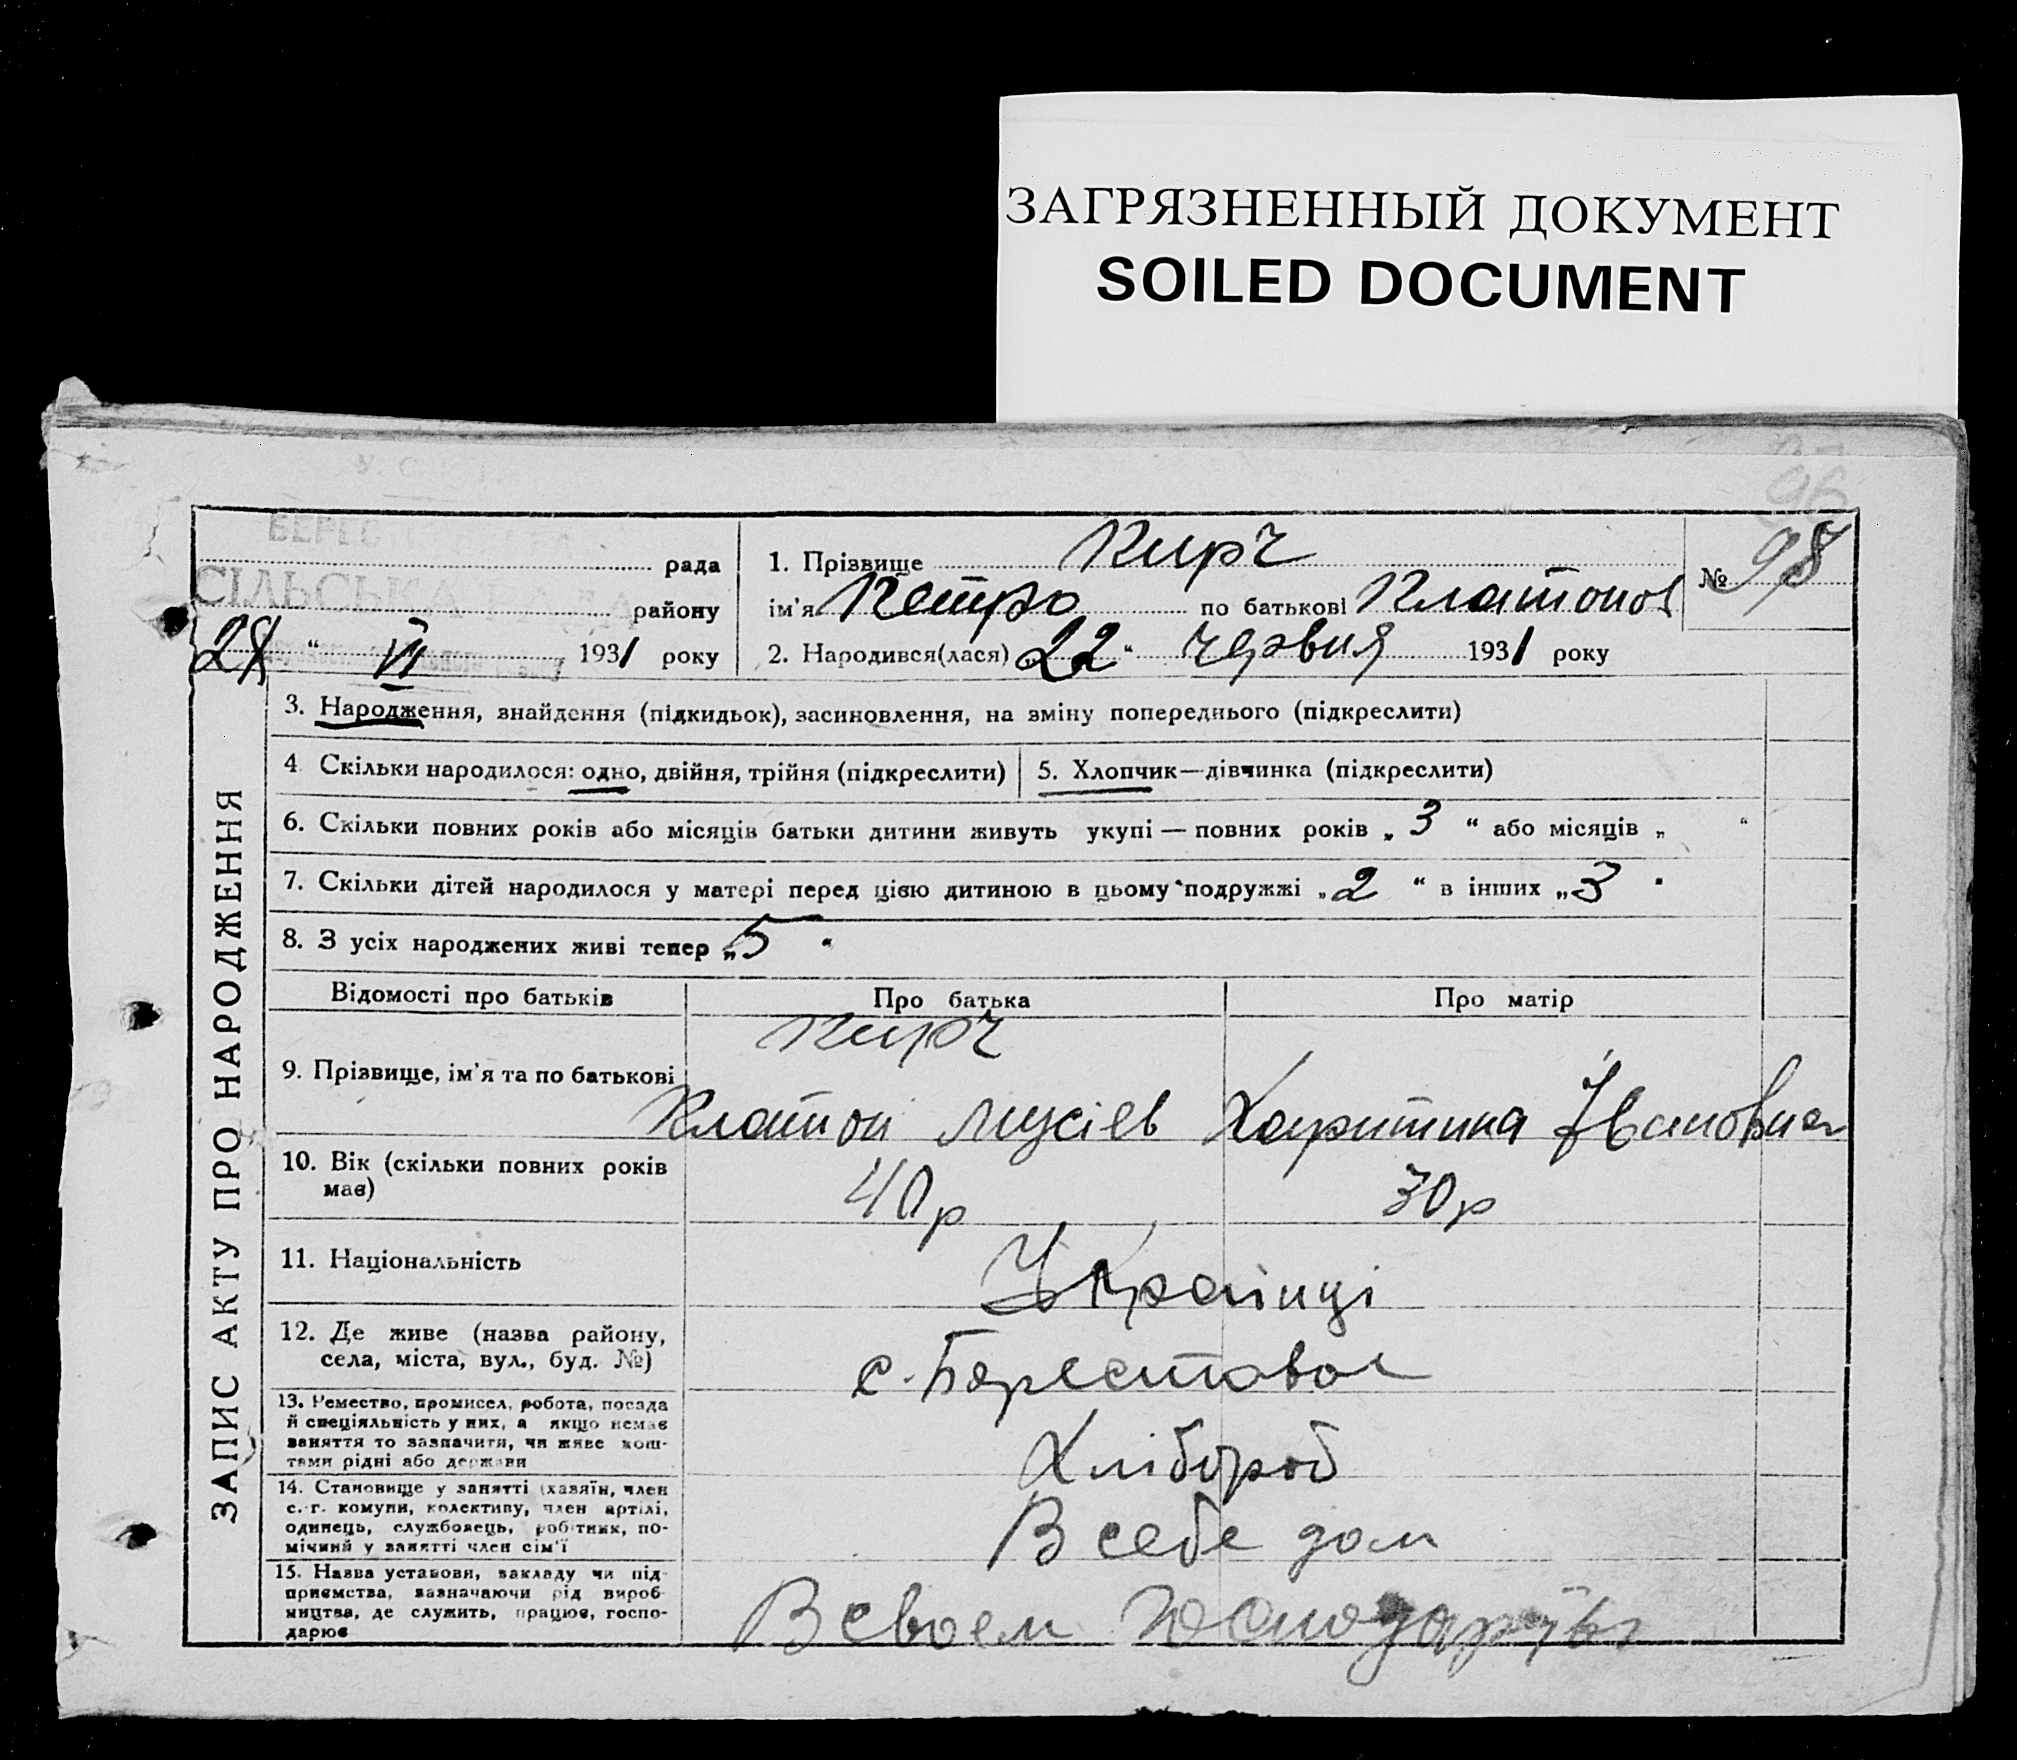 ЗАГРЯЗНЕННЫЙ ДОКУМЕНТ
SOILED DOCUMENT
96
рада
СІЛЬСЬКА РАДА
району
„ VI 1931 року
1. Прізвище Кирч
ім'я Петро по батькові Платонов
№ 98
2. Народився(лася) „22“ червня 1931 року
ЗАПИС АКТУ ПРО НАРОДЖЕННЯ
3. Народження, знайдення (підкидьок), засиновлення, на зміну попереднього (підкреслити)
4 Скільки народилося: одно, двійня, трійня (підкреслити)
5. Хлопчик—дівчинка (підкреслити)
6. Скільки повних років або місяців батьки дитини живуть укупі — повних років „ 3 “ або місяців „ “
7. Скільки дітей народилося у матері перед цією дитиною в цьому подружжі „2 “ в інших „3 “
8. З усіх народжених живі тепер „5 “
Відомості про батьків Про батька Про матір
Кирч
9. Прізвище, ім'я та по батькові Платон Мусіев Харитина Івановна
10. Вік (скільки повних років 40р 30р
має)
11. Національність Українці
12. Де живе (назва району,
села, міста, вул., буд. №) с. Берестова
13. Ремество, промисел, робота, посада
й спеціяльність у них, а якщо немає
заняття то зазначити, чи живе кош-
тами рідні або держави
Хлібороб
14. Становище у занятті (хазяїн, член
с.-г. комуни, колективу, член артілі,
одинець, службовець, робітник, по-
мічний у занятті член сім'ї
В себе дом
15. Назва установи, закладу чи під-
приємства, зазначаючи рід вироб-
ництва, де служить, працює, госпо-
дарює
В своем